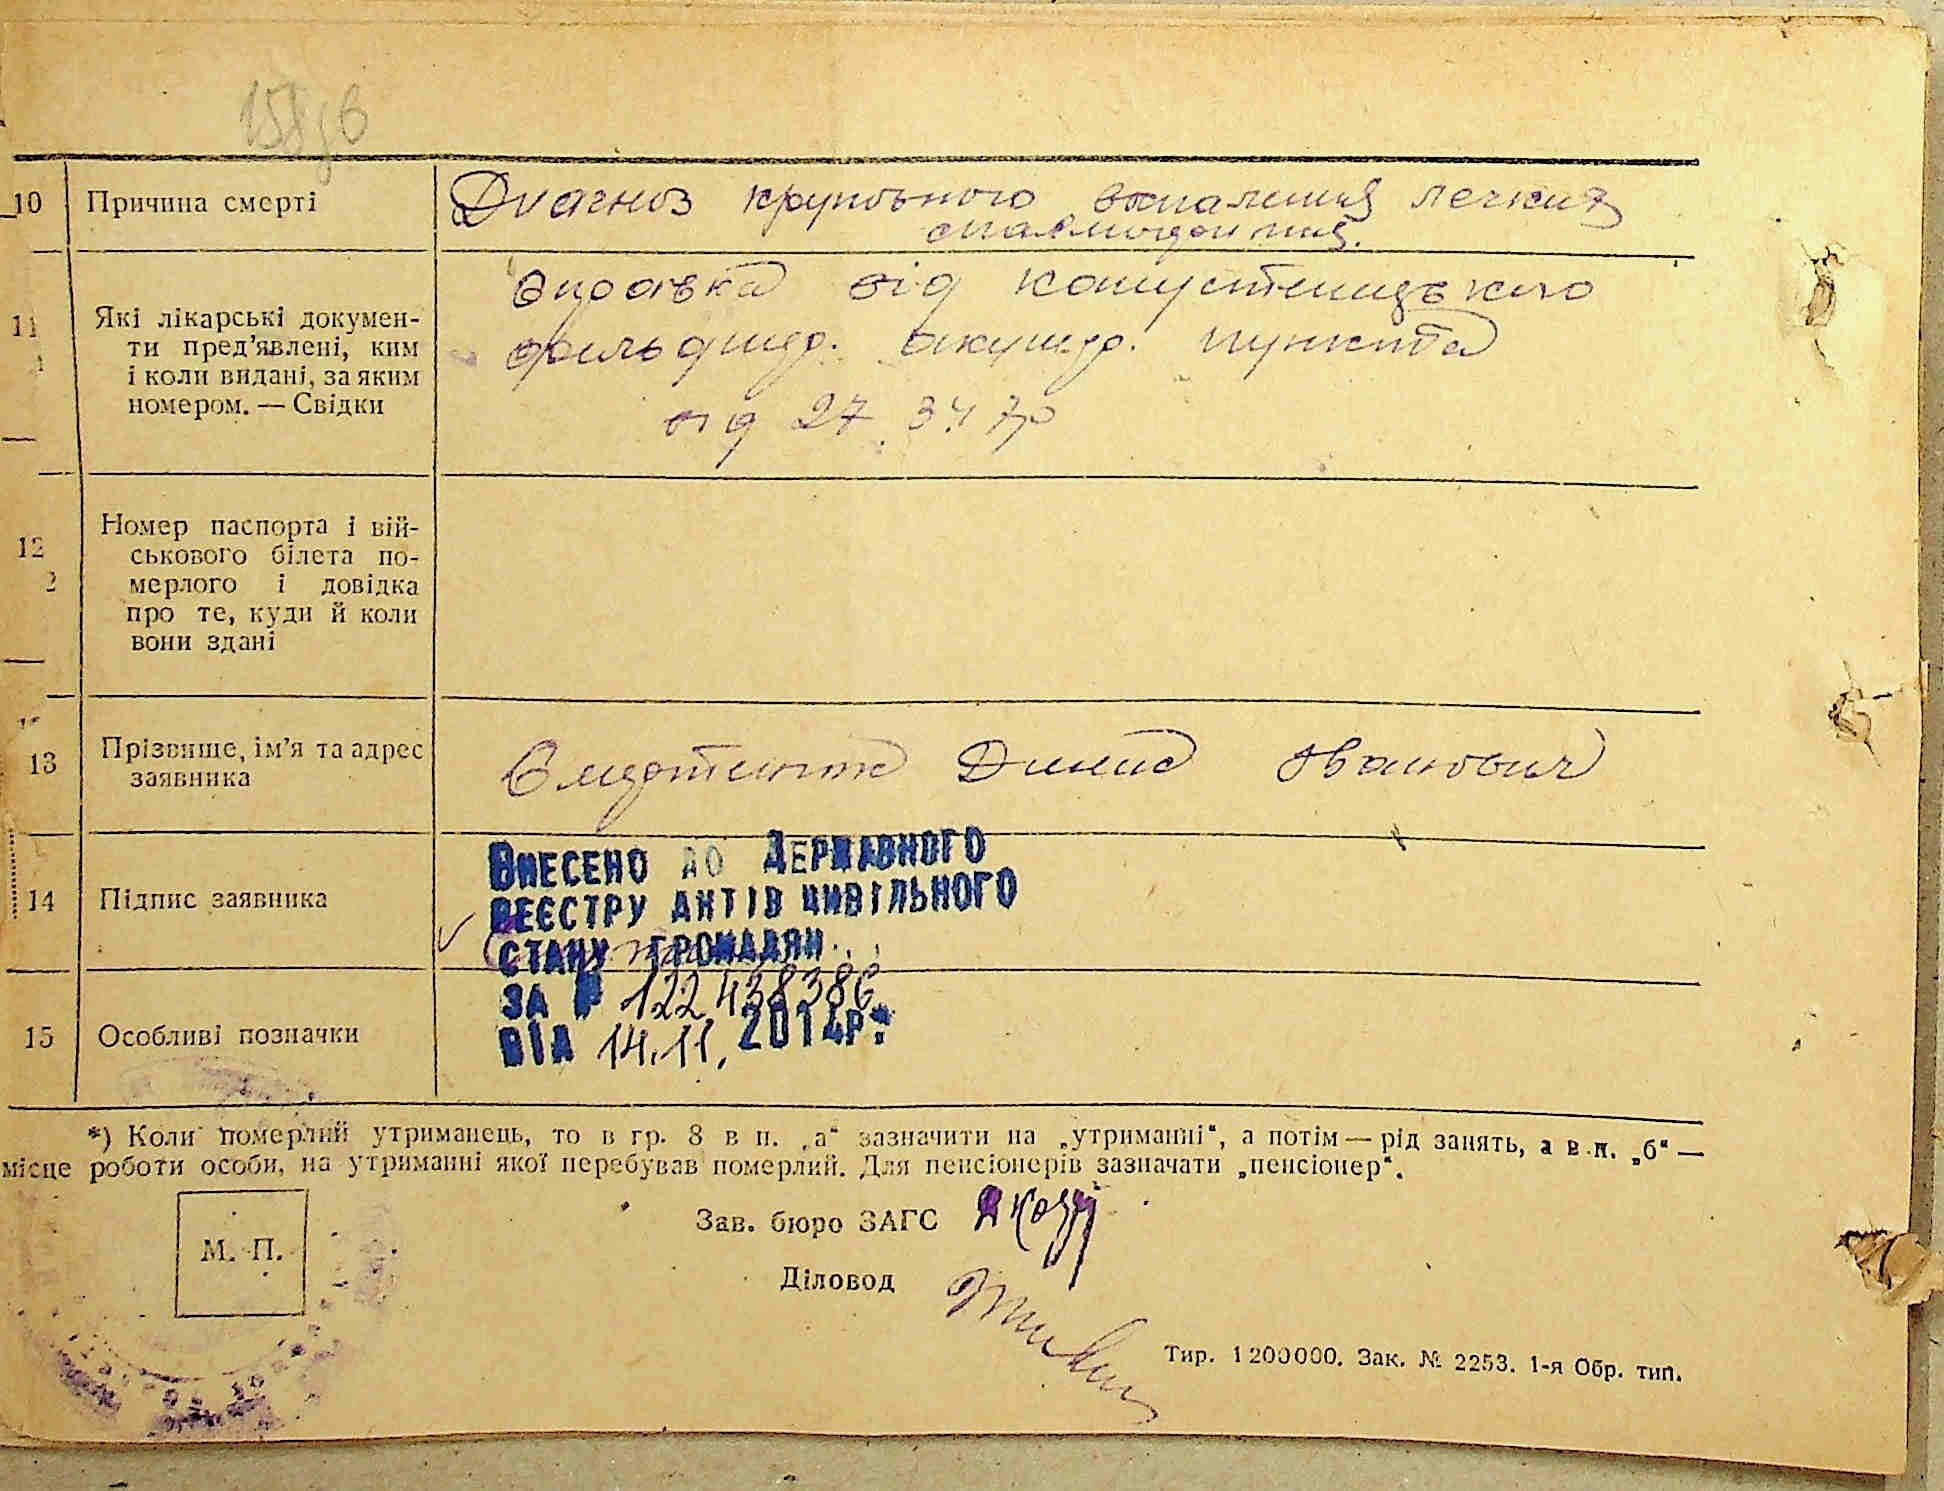 10 Причина смерті
Диагноз крупозного воспаления легких
11 Які лікарські докумен-
ти пред'явлені, ким
і коли видані, за яким
номером. — Свідки
від
фельдшер. акушер. пункта
від 27 3 47р
12 Номер паспорта і вій-
ськового білета по-
мерлого і довідка
про те, куди й коли
вони здані
13 Прізвище, ім'я та адрес
заявника
Денис Іванович
14 Підпис заявника
Внесено до Державного
реєстру актів цивільного
стану громадян
за № 122438386
від 14.11. 2014р.
15 Особливі позначки
*) Коли померлий утриманець, то в гр. 8 в п. „а“ зазначити на „утриманні“, а потім — рід занять, а в п. „б“ —
місце роботи особи, на утриманні якої перебував померлий. Для пенсіонерів зазначати „пенсіонер“.
М. П.
Зав. бюро ЗАГС
Діловод
Тир. 1200000. Зак. № 2253. 1-я Обр. тип.